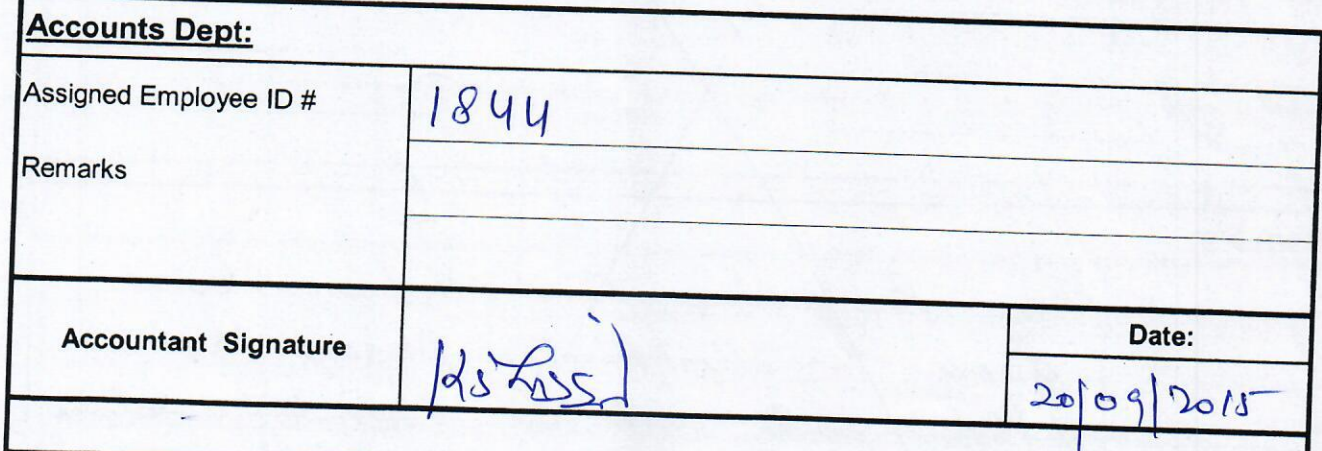 Accounts Dept:
Assigned Employee ID # 1844
Remarks
Accountant Signature
Date:
20/09/2015